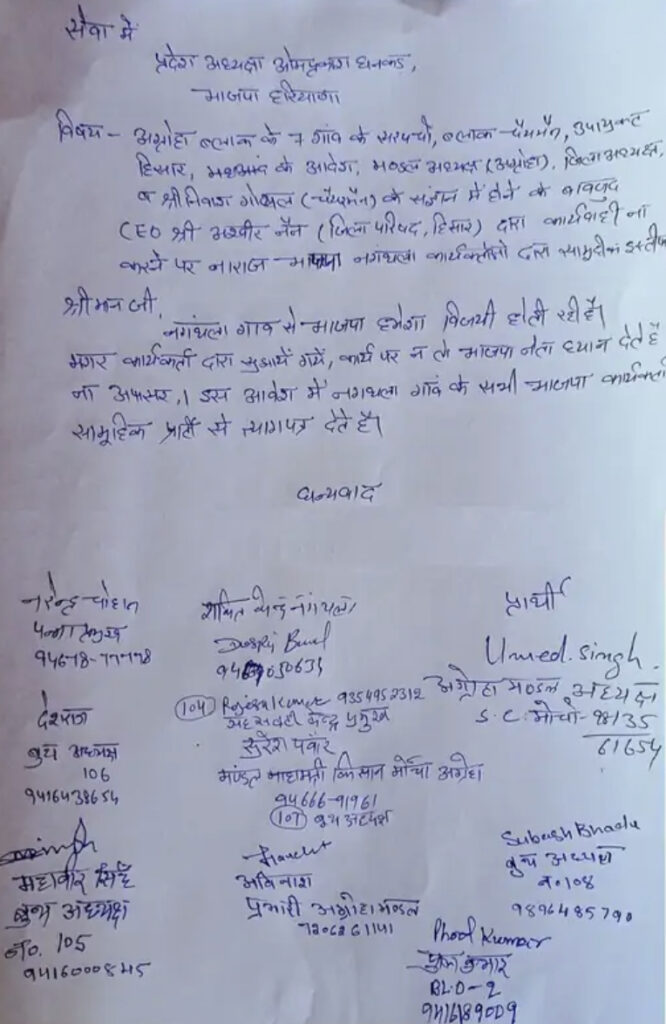 सेवा में
प्रदेश अध्यक्ष ओमप्रकाश धनकड,
भाजपा हरियाणा
विषय - अग्रोहा ब्लाक के 7 गांव के सरपंचो, ब्लाक चैयरमैन, उपायुक्त
हिसार, के आदेश, मण्डल अध्यक्ष (अग्रोहा), जिला अध्यक्ष,
व श्री निवास गोयल (चैयरमैन) के संज्ञान में होने के बावजुद
CEO श्री अश्वीर नैन (जिला परिषद, हिसार) द्वारा कार्यवाही ना
करने पर नाराज भाजपा नंगथला कार्यकर्ताओ द्वारा सामुहिक
श्रीमान जी,
नगंथला गांव से भाजपा हमेशा विजयी होती रही है।
मगर कार्यकर्ता द्वारा सुझायें गयें, कार्य पर न तो भाजपा नेता ध्यान देते है
ना अफसर,। इस आवेश में नगथला गांव के सभी भाजपा कार्यकर्ता
सामुहिक पार्टी से त्यागपत्र देते है।
धन्यवाद
प्रार्थी
नरेन्द्र चौहान
पन्ना प्रमुख
Umed. Singh
अग्रोहा मण्डल अध्यक्ष
S.C. मोर्चा 98135
61654
(104) Rajesh Kumar 9354952312
केन्द्र प्रमुख
सुरेश पंवार
मण्डल महामंत्री किसान मोर्चा अग्रोहा
94666-91961
(107) बुथ अध्यक्ष
देशराज
बुथ अध्यक्ष
106
9416438654
महावीर सिंह
बुथ अध्यक्ष
नं0. 105
9416000845
अविनाश
प्रभारी अग्रोहा मण्डल
7206261141
Subash Bhadu
बुथ अध्यक्ष
न.108
9896485790
Phool Kumar
फुल कुमार
BLO-2
9416189009